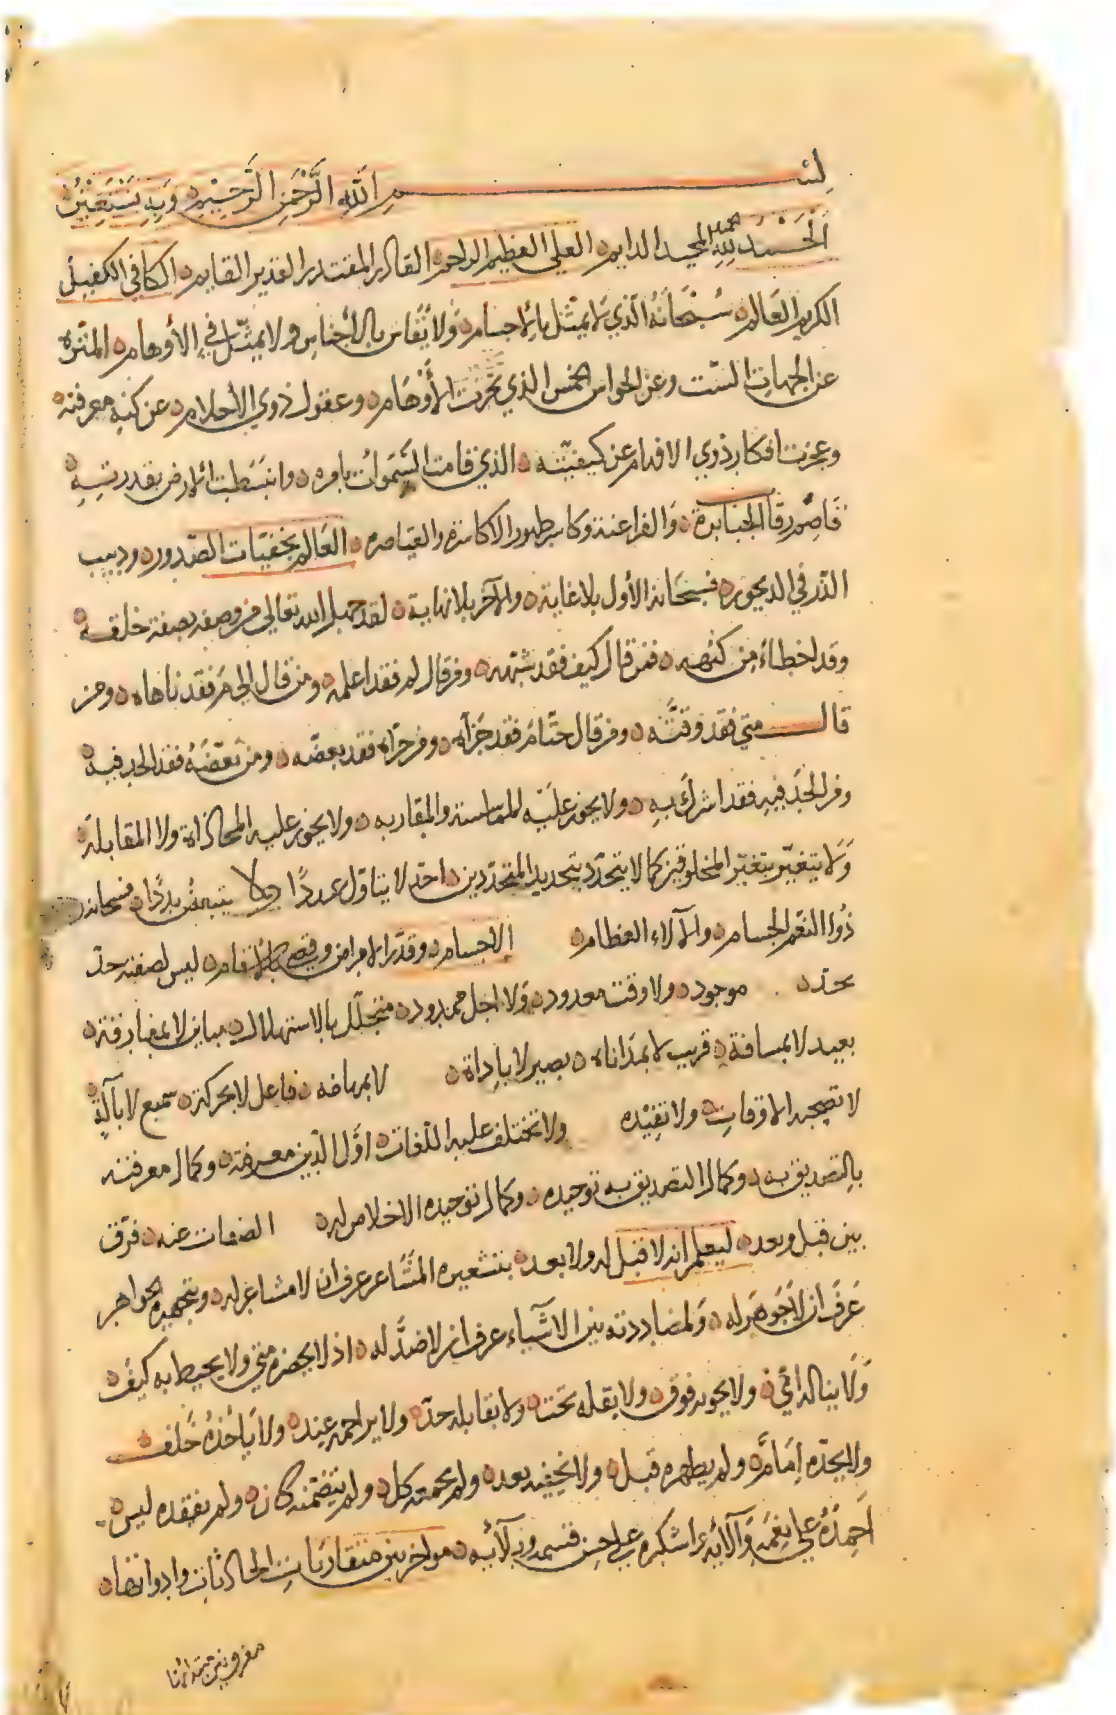 بسم الله الرحمن الرحيم وبه نستعين
الحمد لله المجيد الدايم العلي العظيم الراحم القادر المقتدر القدير القايم الكافي الكفيل
الكريم العالم سبحانه الذي لا يمثل بالاجسام ولا يقاس بالأجناس ولا يمثل في الأوهام المنزه
عن الجهات الست وعن الحواس الخمس الذي تحيرت الأوهام وعقول ذوي الأحلام عن كنه معرفته
وعجزت افكار ذوي الافهام عن كيفيته الذي قامت السموات بامره وانبسطت الارض بقدرته
قاصم رقاب الجبابرة والفراعنة وكاسر ظهور الاكاسرة والقياصره العالم بخفيات الصدور ودبيب
الذر في الديجور فسبحانه الأول بلا غاية والآخر بلا نهاية لقد جهل الله تعالى من وصفه بصفة خلقه
وقد اخطاء من كنهه فمن قال كيف فقد شبهه ومن قال لم فقد اعلمه ومن قال الى م فقد ناهاه ومن
قال متى فقد وقته ومن قال حتام فقد جزآه ومن جزاه فقد بعضه ومن بعضه فقد الحد فيه
ومن الحد فيه فقد اشرك به ولا يجوز عليه المماسة والمقاربه ولا يجوز عليه المحاذاة ولا المقابلة
ولا يتغير بتغير المخلوقين كما لا يتحدد بتحديد المتحددين احد لا يتاول عددا ولا يتبعض بددا فسبحانه
ذوا النعم الجسام والآلاء العظام الاجسام وقدر الامراض بالأسقام ليس لصفته حد
بحد موجود ولا وقت معدود ولا اجل ممدود متجلل بالاستهلال مباين لا بمفارقة
بعيد لا بمسافة قريب لا بمداناه بصير لا باداة لا بمهامه فاعل لا بحركة سميع لا بآلة
لا تصحبه الاوقات ولا تقيده ولا تختلف عليه اللغات اول الدين معرفته وكمال معرفته
بالتصديق به وكمال التصديق به توحيده وكمال توحيده الاخلاص له الصفات عنه فرق
بين قبل وبعد ليعلم انه لا قبل له ولا بعد بتشعيره المشاعر عرف ان لا مشاعر له وبتجهيره الجواهر
عرف ان لا جوهر له ولمضاددته بين الاشياء عرف ان لا ضد له اذ لا يحضره متى ولا يحيط به كيف
ولا يناله اي ولا يحويه فوق ولا يقله تحت ولا يقابله حد ولا يزاحمه عند ولا يأخذه خلف
ولا يحده امام ولم يظهره قبل ولا يخفيه بعد ولم يجمعه كل ولم يتضمنه كان ولم يفقده ليس
احمده على نعمه وآلائه واشكره على حسن قسمه وبلآئه مواخر بين متقاربات الحادثات وادواتها